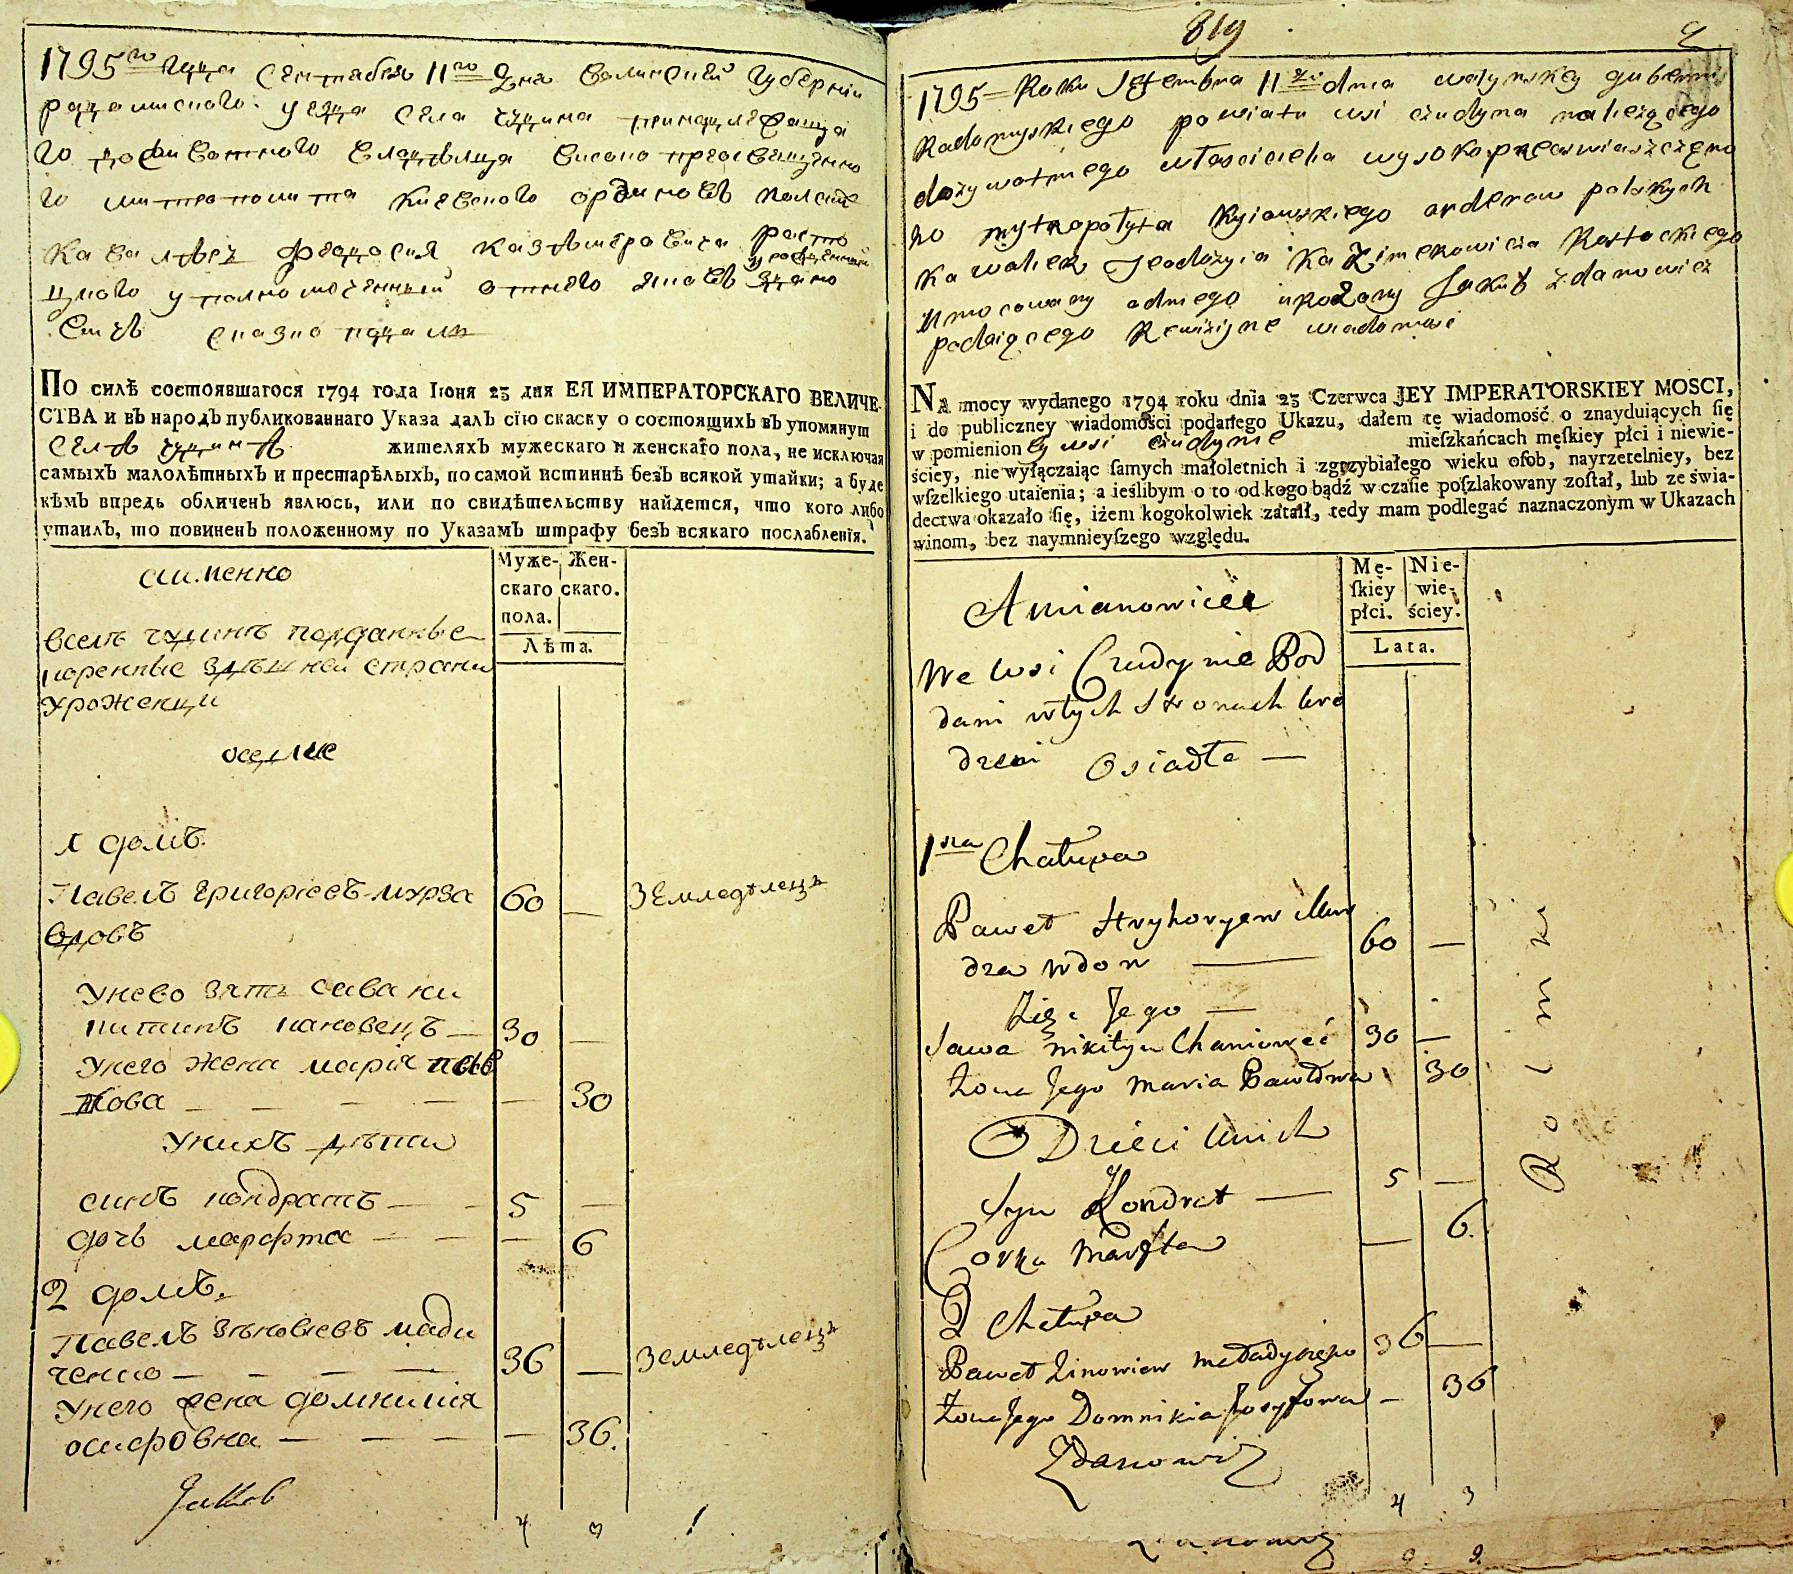 1795го года Сентября 11го дня волинской губернии
радомиского уезда села чудина принадлежаща
го доживотного владелца високо преосвященно
го митрополита киевского ординовъ полских
кавалѣра феодосия казѣмѣровича росто
цкого уполномоченний отнего урожденний яковъ здано
вичъ сказко подали
По силѣ состоявшагося 1794 года Іюня 23 дня ЕЯ ИМПЕРАТОРСКАГО ВЕЛИЧЕ-
СТВА и въ народъ публикованнаго Указа далъ сїю скаску о состоящихъ въ упомянут
селѣ чудинѣ жителяхъ мужескаго и женскаго пола, не исключая
самыхъ малолѣтныхъ и престарѣлыхъ, по самой истиннѣ безъ всякой утайки; а буде
кѣмъ впредь обличенъ явлюсь, или по свидѣтельству найдется, что кого либо
утаилъ, то повиненъ положенному по Указамъ штрафу безъ всякаго послабленїя.
Муже- Жен-
скаго скаго.
пола.
Лѣта.
аименно
вселѣ чудинѣ подданные
коренные здѣшней страни
уроженци
оседлие
1 домъ.
Павелъ григориевъ мурза 60 — земледѣлецъ
вдовъ
Унево зять сава ни
китинъ хановецъ — 30 —
Унего жена мария павъ
лова — — — — — 30
Унихъ дѣти
синъ кондратъ — — 5 —
дочь марфта — — — 6
2 домъ.
Павелъ зѣновиевъ мади
ченко — — — 36 — земледѣлецъ
Унего жена домникия
осифовна — — — — 36.
Jakub
4 3
819
2
1795 Roku Septembra 11go dnia wołynskey gubernii
Radomyskiego powiatu wsi czudyna należącego
dożywotniego właściciela wysoko przeoswiaszczęno
ho mytropolyta kyiowskiego orderow polskych
kawalera Feodozyia Kazimerowicza Rostockiego
umocowany odniego urożony Jakub Zdanowicz
podaiącego Rewizijne wiadomości
NA mocy wydanego 1794 roku dnia 23 Czerwca JEY IMPERATORSKIEY MOSCI,
i do publiczney wiadomości podanego Ukazu, dałem tę wiadomość o znayduiących się
w pomienioney wsi czudynie mieſzkańcach męſkiey płci i niewie-
ściey, nie wyłączaiąc ſamych małoletnich i zgrzybiałego wieku oſob, nayrzetelniey, bez
wſzelkiego utaienia; a ieślibym o to od kogo bądź w czaſie poſzlakowany zoſtał, lub ze świa-
dectwa okazało się, iżem kogokolwiek zataił, tedy mam podlegać naznaczonym w Ukazach
winom, bez naymnieyſzego względu.
Mę- Nie-
ſkiey wie-
płci. ściey.
Lata.
A mianowicie
We wsi Czudynie Pod
dani wtych stronach uro
dzeni Osiadłe —
1sza Chałupa
Paweł Hryhoryew Mur
dza wdow — 60 —
Zięć Jego —
Sawa nikityn Chaniowec 30 —
Żona Jego Maria Pawłowa 30
Dzieci Unich
Syn Kondrat — 5 —
Corka Marfta — 6.
2 Chałupa
Paweł Zinowiew 36 —
Żona Jego Domnikia Jozyfowa — 36
Zdanowicz
4 3
Rolniki